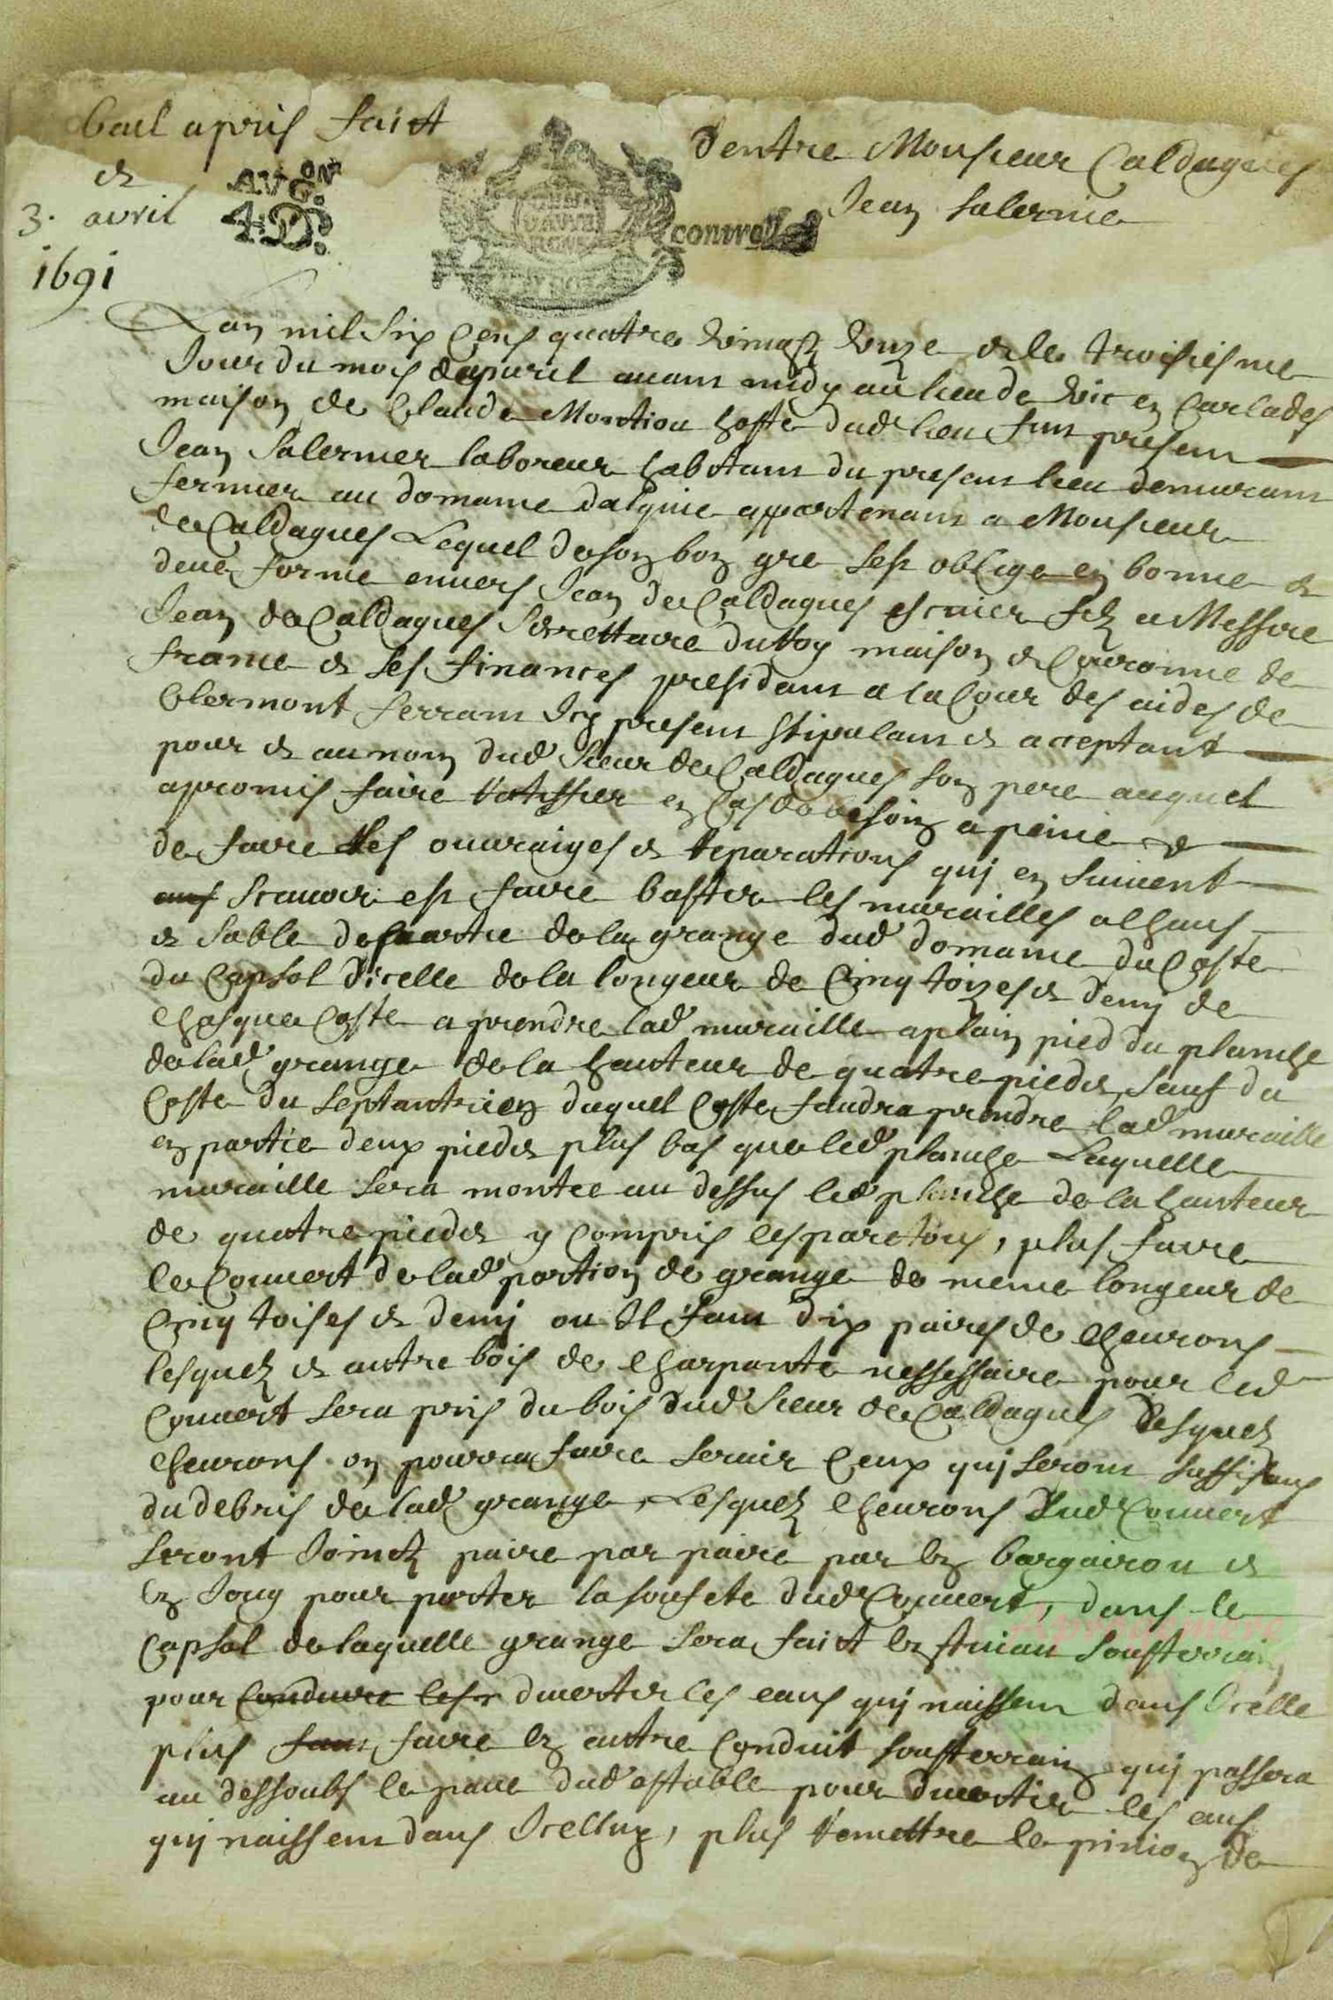 bail a pris faict
et
3. avril
1691
AVG.ON
4 D.
GENE
DAVVE
RGNE
control
Dentre Monsieur Caldagues
Jean Salernie
Lan mil six cens quatre vingtz unze et le troisiesme
Jour du mois dapvril avant midy au lieu de Vic en Carlades
maison de Claude Montiou hoste dud lieu fut present
Jean Salernier laboreur habitant du present lieu demurant
fermier au domaine dalquie appartenant a Monsieur
de Caldagues Lequel de son bon gre sest oblige en bonne et
deue forme envers Jean de Caldagues escuier filz a Messire
Jean de Caldagues Secrettaire du Roy maison et Couronne de
france et ses finances president a la Cour des aides de
Clermont ferrant Icy present stipulant et acceptant
pour et au nom dud Sieur de Caldagues son pere auquel
a promis faire ratiffier en Cas de besoing a peine et
de faire les ouvraiges et reparations qui en suivent
scauoir est faire bastir les murailles a Chaus
et Sable de partie de la grange dud domaine du Coste
du Capsol dicelle de la longeur de Cinq toizes et demy de
Chasque Coste a prendre lad muraille a plain pied du planche
de lad grange de la hauteur de quatre piedz sauf du
Coste du Septantrien duquel Coste faudra prendre lad muraille
en partie deux piedz plus bas que led planche Laquelle
muraille sera montee au dessus led planche de la hauteur
de quatre piedz y Compris les paretous, plus faire
le Couvert de lad portion de grange de meme longeur de
Cinq toises et demy ou Il faut dix paires de Chevrons
lesquelz et autre bois de Charpante nessessaire pour led
Couvert sera pris du bois dud Sieur de Caldagues Desquelz
Chevrons on pourra faire servir Ceux qui seront suffisans
du debris de lad grange, Lesquelz Chevrons dud Couvert
seront Joinctz paire par paire par un bargairou et
un Joug pour porter la soufete dud Couvert, dans le
Capsol de laquelle grange sera faict un souterrain
pour conduire les divertir les eaus qui naissent dans Icelle
plus faut faire un autre Conduit sousterrain qui passera
au dessoubs le pave dud estable pour divertir les eaus
qui naissent dans Icelluy, plus remettre le pinion de